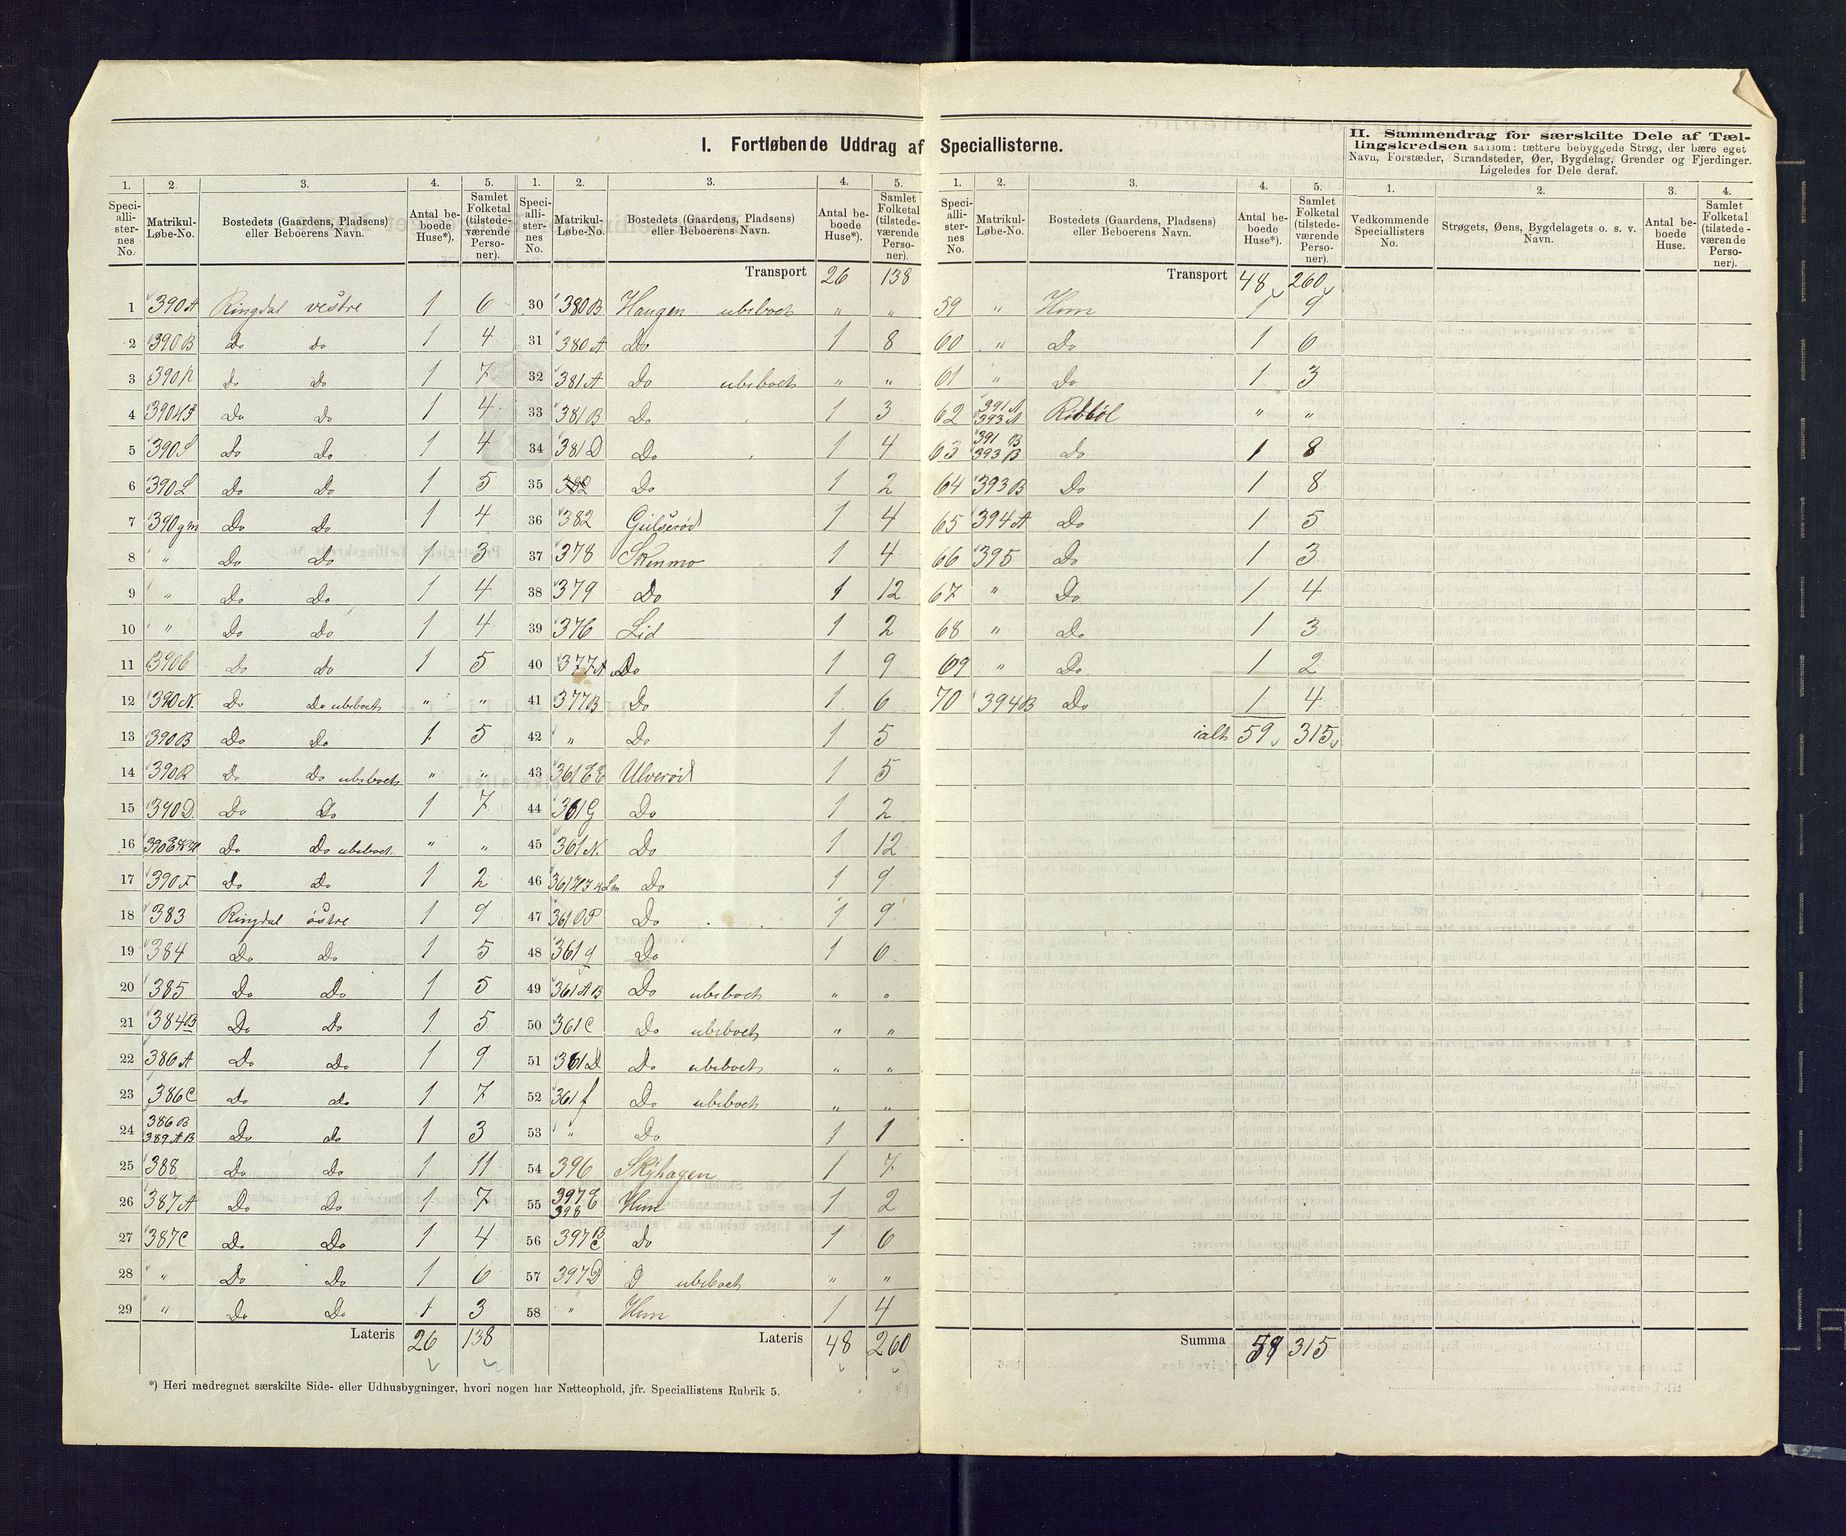 I. Fortløbende Uddrag af Speciallisterne.
II. Sammendrag for særskilte Dele af Tæl-
lingskredsen saasom: tættere bebyggede Strøg, der bære eget
Navn, Forstæder, Strandsteder, Øer, Bygdelag, Grender og Fjerdinger.
Ligeledes for Dele deraf.
1. 2. 3. 4. 5.
Speci-alli-ster-nes No. Matrikul-Løbe-No. Bostedets (Gaardens, Pladsens) eller Beboerens Navn. Antal be-boede Huse*). Samlet Folketal (tilstede-værende Perso-ner).
1 390A Ringdal vestre 1 6
2 390B Do Do 1 4
3 390 Do Do 1 7
4 390 Do Do 1 4
5 390 Do Do 1 4
6 390L Do Do 1 5
7 390gm Do Do 1 4
8 " Do Do 1 3
9 " Do Do 1 4
10 " Do Do 1 4
11 390C Do Do 1 5
12 390N. Do Do ubeboet " "
13 390B Do Do 1 5
14 390R Do Do ubeboet " "
15 390D. Do Do 1 7
16 390 Do Do ubeboet " "
17 390F Do Do 1 2
18 383 Ringdal östre 1 9
19 384 Do Do 1 5
20 385 Do Do 1 5
21 384B Do Do 1 5
22 386A Do Do 1 9
23 386C Do Do 1 7
24 386B 389AB Do Do 1 3
25 388 Do Do 1 11
26 387A Do Do 1 7
27 387C Do Do 1 4
28 " Do Do 1 6
29 " Do Do 1 3
Lateris 26 138
*) Heri medregnet særskilte Side- eller Udhusbygninger, hvori nogen har Natteophold, jfr. Speciallistens Rubrik 5.
1. 2. 3. 4. 5.
Speci-alli-ster-nes No. Matrikul-Løbe-No. Bostedets (Gaardens, Pladsens) eller Beboerens Navn. Antal be-boede Huse*). Samlet Folketal (tilstede-værende Perso-ner).
Transport 26 138
30 380B Haugen ubeboet " "
31 380A Do 1 8
32 381A Do ubeboet " "
33 381B Do 1 3
34 381D Do 1 4
35 382 Do 1 2
36 382 Gulserød 1 4
37 378 Skinmo 1 4
38 379 Do 1 12
39 376 Lid 1 2
40 377A Do 1 9
41 377B Do 1 6
42 " Do 1 5
43 361EE Ulverød 1 5
44 361G Do 1 2
45 361N. Do 1 12
46 361 Do 1 9
47 361OP Do 1 9
48 361q Do 1 6
49 361AB Do ubeboet " "
50 361C Do ubeboet " "
51 361D Do ubeboet " "
52 361f Do ubeboet " "
53 " Do 1 1
54 396 Skyhagen 1 7
55 397E 398 Hem 1 2
56 397BC Do 1 6
57 397D D ubeboet " "
58 " Hem 1 4
Lateris 48 260
1. 2. 3. 4. 5.
Speci-alli-ster-nes No. Matrikul-Løbe-No. Bostedets (Gaardens, Pladsens) eller Beboerens Navn. Antal be-boede Huse*). Samlet Folketal (tilstede-værende Perso-ner).
Transport 48 260
59 " Hem 1 9
60 " Do 1 6
61 " Do 1 3
62 391A 393A " "
63 391B 393B Do 1 8
64 393B Do 1 8
65 394A Do 1 5
66 395 Do 1 3
67 " Do 1 4
68 " Do 1 3
69 " Do 1 2
70 394B Do 1 4
ialt 59 315
Summa 59 315
1. 2. 3. 4.
Vedkommende Speciallisters No. Strøgets, Øens, Bygdelagets o. s. v. Navn. Antal be-boede Huse. Samlet Folketal (tilstede-værende Perso-ner).